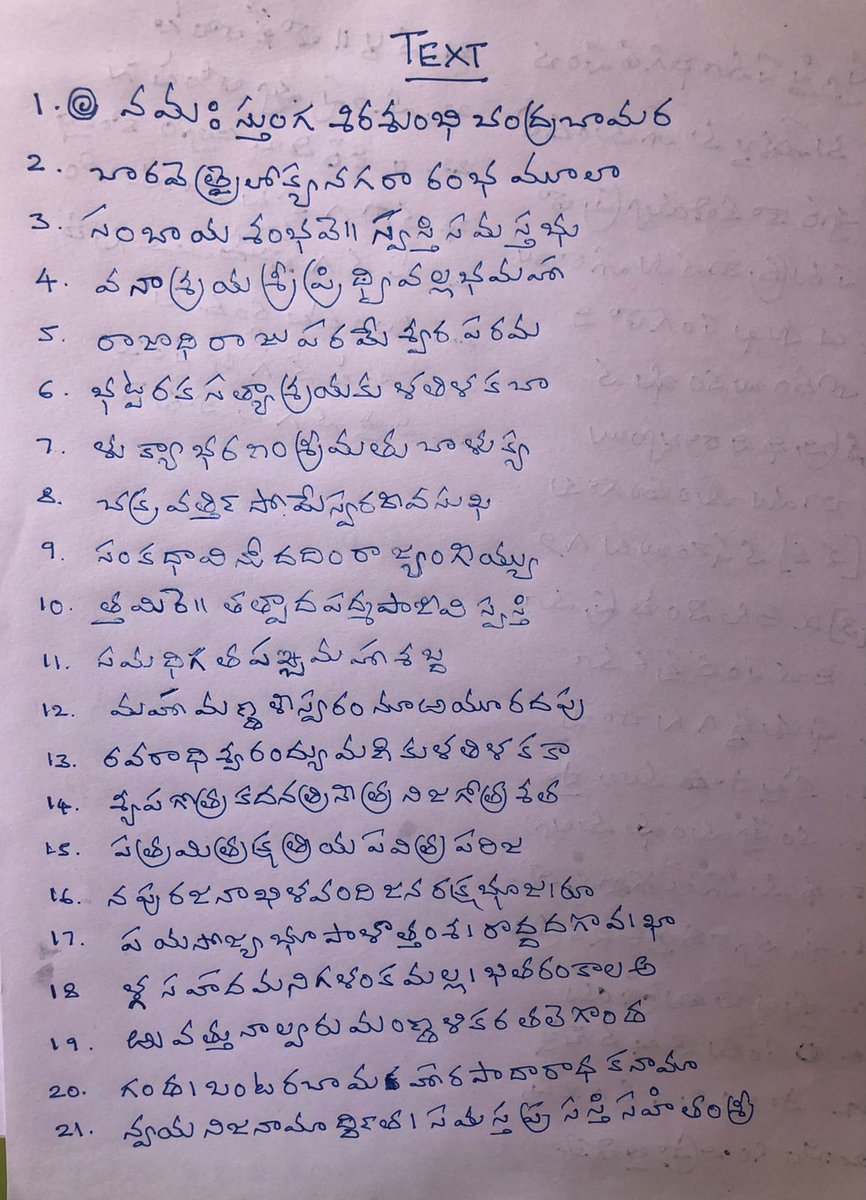 TEXT
1. నమః స్తుంగ శిరశుంభి చంద్రచామర
2. చారవెత్రైలోక్యనగరా రంభ మూలా
3. సంబాయ శంభవె॥ స్వస్తి సమస్తభు
4. వనాశ్రయశ్రీప్రిథ్వివల్లభమహా
5. రాజాధిరాజుపరమేశ్వర పరమ
6. భట్టరకసత్యాశ్రయకు ళతిళకచా
7. ళుక్యాభరణంశ్రీమతుచాళుక్య
8. చక్రవర్త్తి సోమేస్వరదేవసుఖ
9. సంకథావినోదదింరాజ్యంగెయ్యు
10. త్తమిరె॥ తత్పాదపద్మపాజీవి స్వస్తి
11. సమధిగతపఞ్చమహాశబ్ద
12. మహామణ్డళేస్వరంనూఱయూరదపు
13. రవరాధిశ్వరంద్యుమణికుళతిళకకా
14. శ్యపగోత్రకదనత్రినేత్ర నిజగోత్రశత
15. పత్రమిత్రక్షత్రియపవిత్రపరిజ
16. నపురజనాఖిళవందిజనరక్షభూజ।రూ
17. పయసోజ్యభూపాళోత్తంశ। రాద్దదగావ।ఖా
18 ళ్గసహదమనిగళంకమల్ల। భితరంకాలఅ
19. ఱువత్తునాల్వరుమంణ్డళికరతలెగొండ
20. గండ। బంటరబామ హారపాదారాధకనామా
21. న్వయనిజనామాద్ధిగత। సమస్తప్రసస్తిసహితంశ్రీ